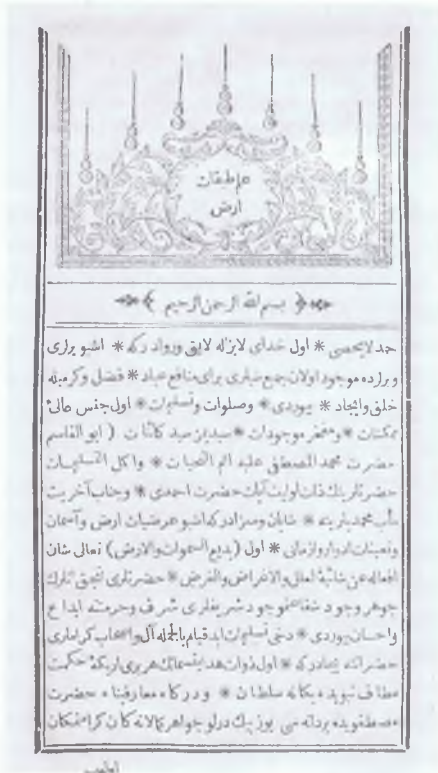 علم طبقات
ارض
بسم الله الرحمن الرحيم
حمد لايحصى * اول خداى لايزاله لايق وروادركه * اشو برلرى
و برلرده موجود اولان جمع شيلرى براى منافع عباد * فضل وكرميله
خلق وايجاد * بيوردى * وصلوات وتسليمات * اول جنس عالئ
ممكنات * ومفخر موجودات * سيدبن سيد كائنات ( ابو القاسم
حضرت محمد المصطفى عليه اتم التحيات * واكل التسليمات
حضرتلرينك ذات اوليت آيات حضرت احمدى * وجناب آخريت
مأب محمديلرينه * شايان وسزادركه اشو عرضيات ارض وآسمان
وتعينات ادوار وازمانى * اول (بديع السموات والارض) تعالى شان
افعاله عن شائبة العلل والاغراض والغرض * حضرتلرى
جوهر وجود شريفلرى شرف وحرمتنه ابداع
واحسان بيوردى * دخى تسليمات ابد قيام بالجمله آل واصحاب كرامارى
حضراتنه بجادركه * اول ذوات هر برى اريكۀ حكمت
سلطان * ودركاه معارفپناه حضرت
مصطفويده بردانه سى يوز بيك درلو جواهر